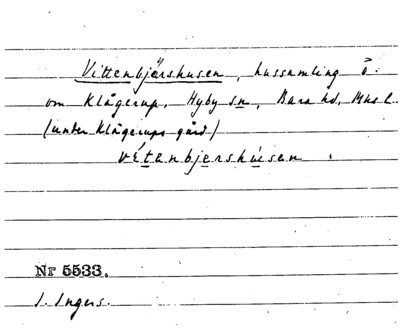 Vittenbjärshusen, hussamling ö.
om Klågerup, Hyby sn, Bara hd, Mus l.
(under Klågerups gård)
vétenbjershúsen.
Nr 5533.
I. Ingers.